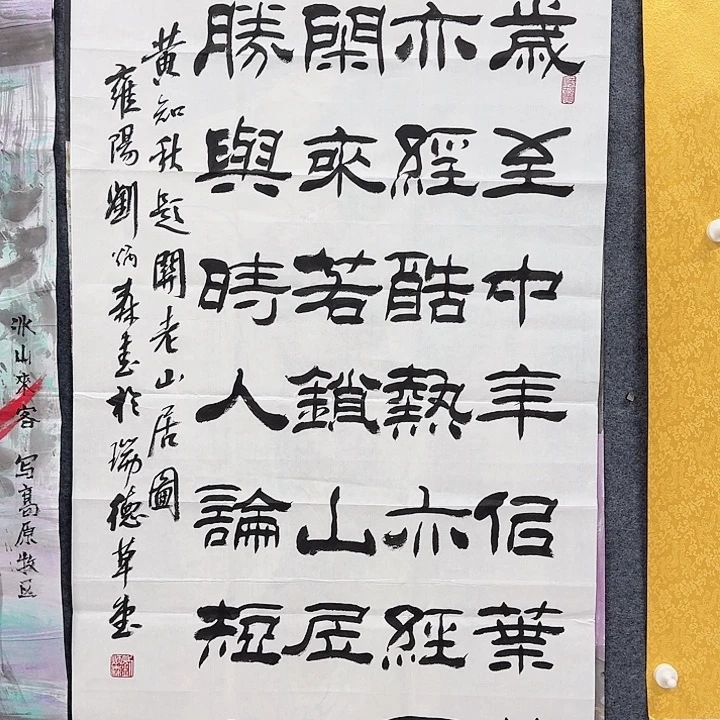 歲至中年佀葉
亦經酷熱亦經
閑來若鎖山居
勝與時人論短
黃知秋題關老山居圖
雍陽劉炳森書於瑞德草堂
冰山來客 写高原牧区